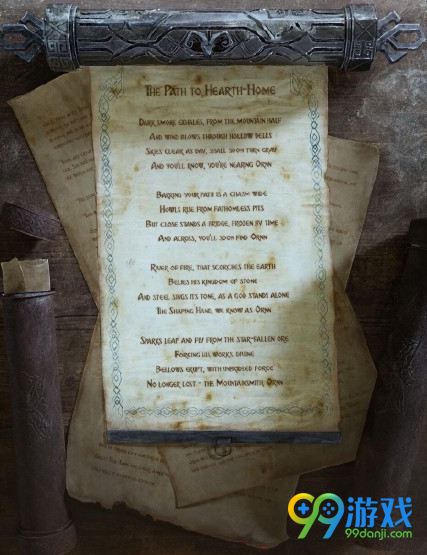 The Path to Hearth-Home
Dark smoke exhales, from the mountain half
And wind blows through hollow dells
Skies clear as day, shall soon turn gray
And you'll know, you're nearing Ornn
Barring your path is a chasm wide
Howls rise from fathomless pits
But close stands a bridge, frozen by time
And across, you'll soon find Ornn
River of fire, that scorches the earth
Belies his kingdom of stone
And steel sings its tone, as a god stands alone
The Shaping Hand, we know as Ornn
Sparks leap and fly from the star-fallen ore
Forging his works divine
Bellows erupt, with unbridled force
No longer lost - the Mountainsmith, Ornn
99游戏
99danji.com